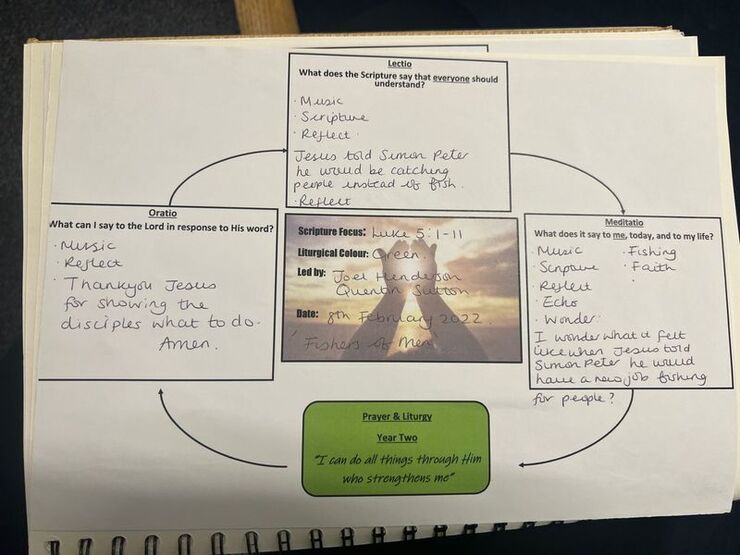 Lectio
What does the Scripture say that everyone should
understand?
· Music
· Scripture
· Reflect ·
Jesus told Simon Peter
he would be catching
people instead of fish.
· Reflect
Oratio
What can I say to the Lord in response to His word?
· Music
· Reflect
· Thankyou Jesus
for showing the
disciples what to do.
Amen.
Scripture Focus: Luke 5:1-11
Liturgical Colour: Green
Led by: Joel Henderson
Quentin Sutton
Date: 8th February 2022.
' Fishers of Men
Meditatio
What does it say to me, today, and to my life?
· Music · Fishing
· Scripture · Faith
· Reflect ·
· Echo
· Wonder:
I wonder what it felt
like when Jesus told
Simon Peter he would
have a new job fishing
for people?
Prayer & Liturgy
Year Two
"I can do all things through Him
who strengthens me"